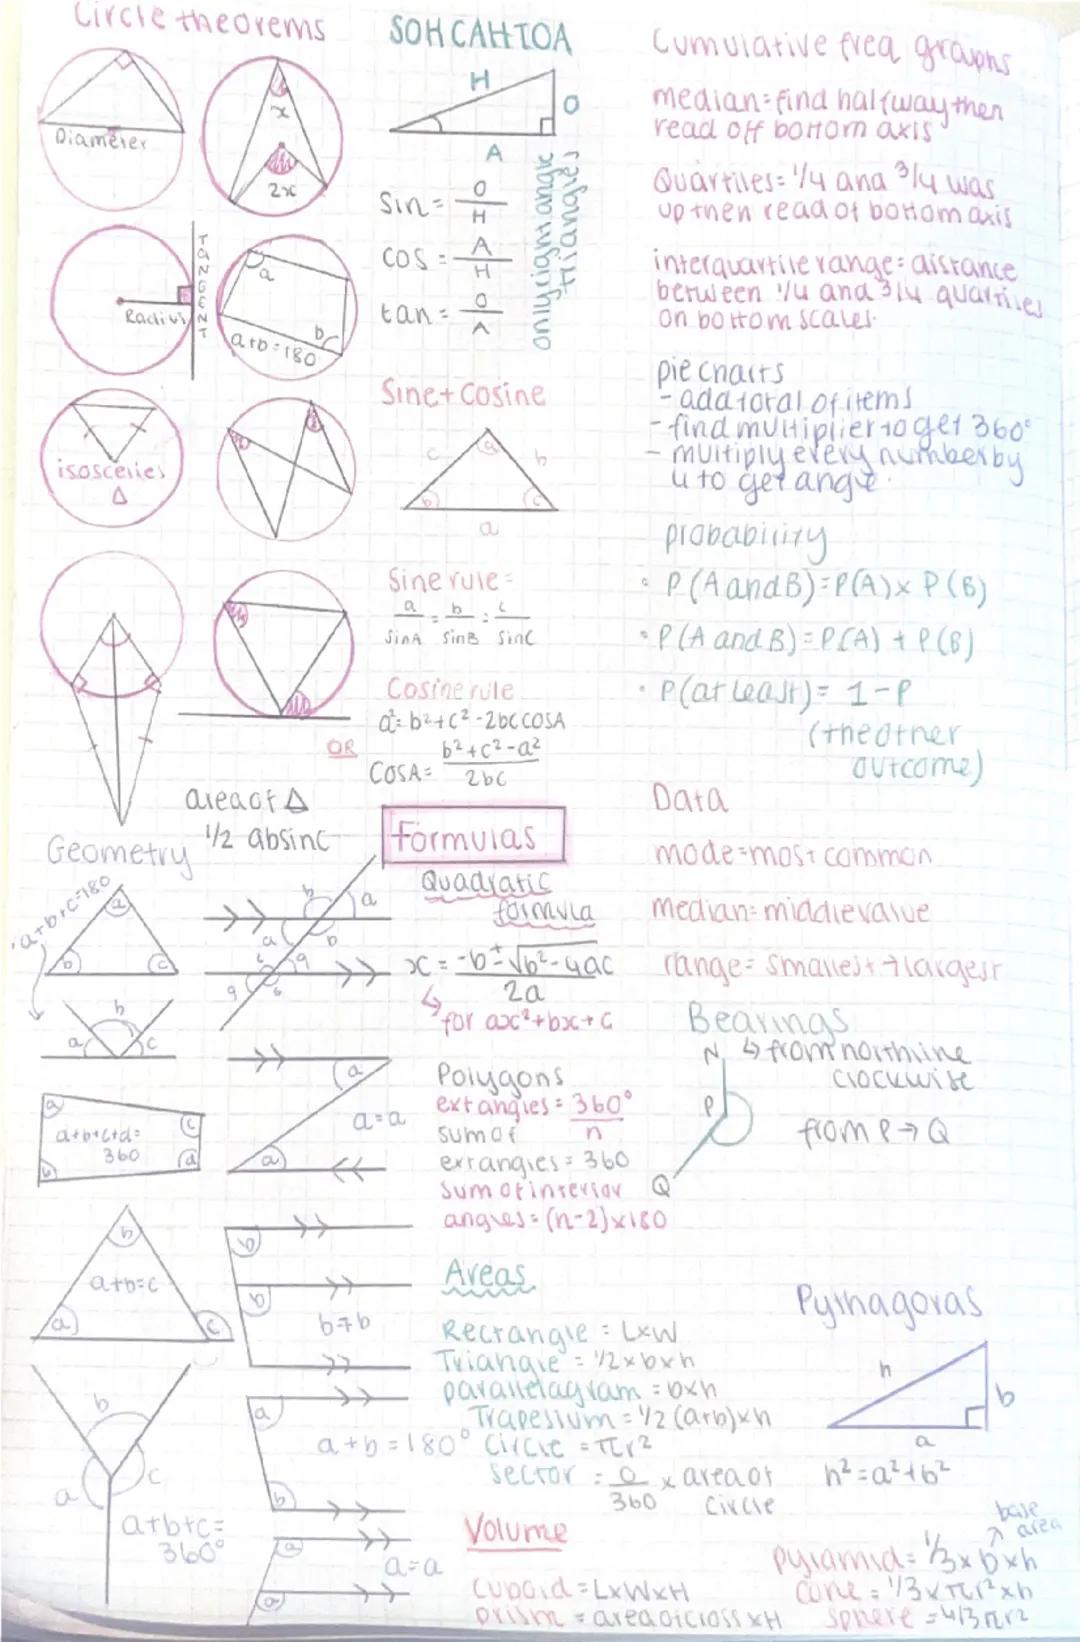 Circle theorems
Diameter
x
2x
Radius
TANGENT
a
b
a+b=180
isosceles
Δ
area of Δ
1/2 absinc
SOHCAHTOA
H
O
A
Sin = O/H
cos = A/H
tan = O/A
only right angle
triangles
Sine + Cosine
c
a
b
b
c
a
Sine rule =
a/sinA = b/sinB = c/sinC
Cosine rule
a² = b²+c²-2bccosA
OR
COSA = b²+c²-a²/2bc
Formulas
Quadratic
formula
x = -b±√b²-4ac/2a
↳ for ax²+bx+c
Polygons
ext angles = 360°/n
sum of
ext angles = 360
sum of interior
angles = (n-2)x180
Areas
Rectangle = LxW
Triangle = 1/2 x b x h
parallelagram = bxh
Trapesium = 1/2 (a+b)xh
Circle = πr²
Sector = θ/360 x area of
circle
Volume
Cuboid = LxWxH
prism = area of cross xH
Geometry
a+b+c=180
a
b
c
a
b
c
a
b
c
d
a+b+c+d=
360
b
a+b=c
a
c
b
a
c
a+b+c=
360°
b
a
a
b
a
a
a=a
b
b
b=b
a
a+b=180°
b
a
a=a
a
Cumulative freq graphs
median = find halfway then
read off bottom axis
Quartiles = 1/4 and 3/4 was
up then read of bottom axis
interquartile range = distance
between 1/4 and 3/4 quartiles
on bottom scales.
pie charts
- add total of items
- find multiplier to get 360°
- multiply every number by
4 to get angle.
probability
• P(A and B) = P(A) x P(B)
• P(A and B) = P(A) + P(B)
• P(at least) = 1-P
(the other
outcome)
Data
mode = most common
median = middle value
range = smallest → largest
Bearings
↳ from north line
clockwise
N
P
Q
from P → Q
Pythagoras
h
b
a
h² = a²+b²
base
area
pyramid = 1/3 x b x h
Cone = 1/3 x πr² x h
Sphere = 4/3 πr2